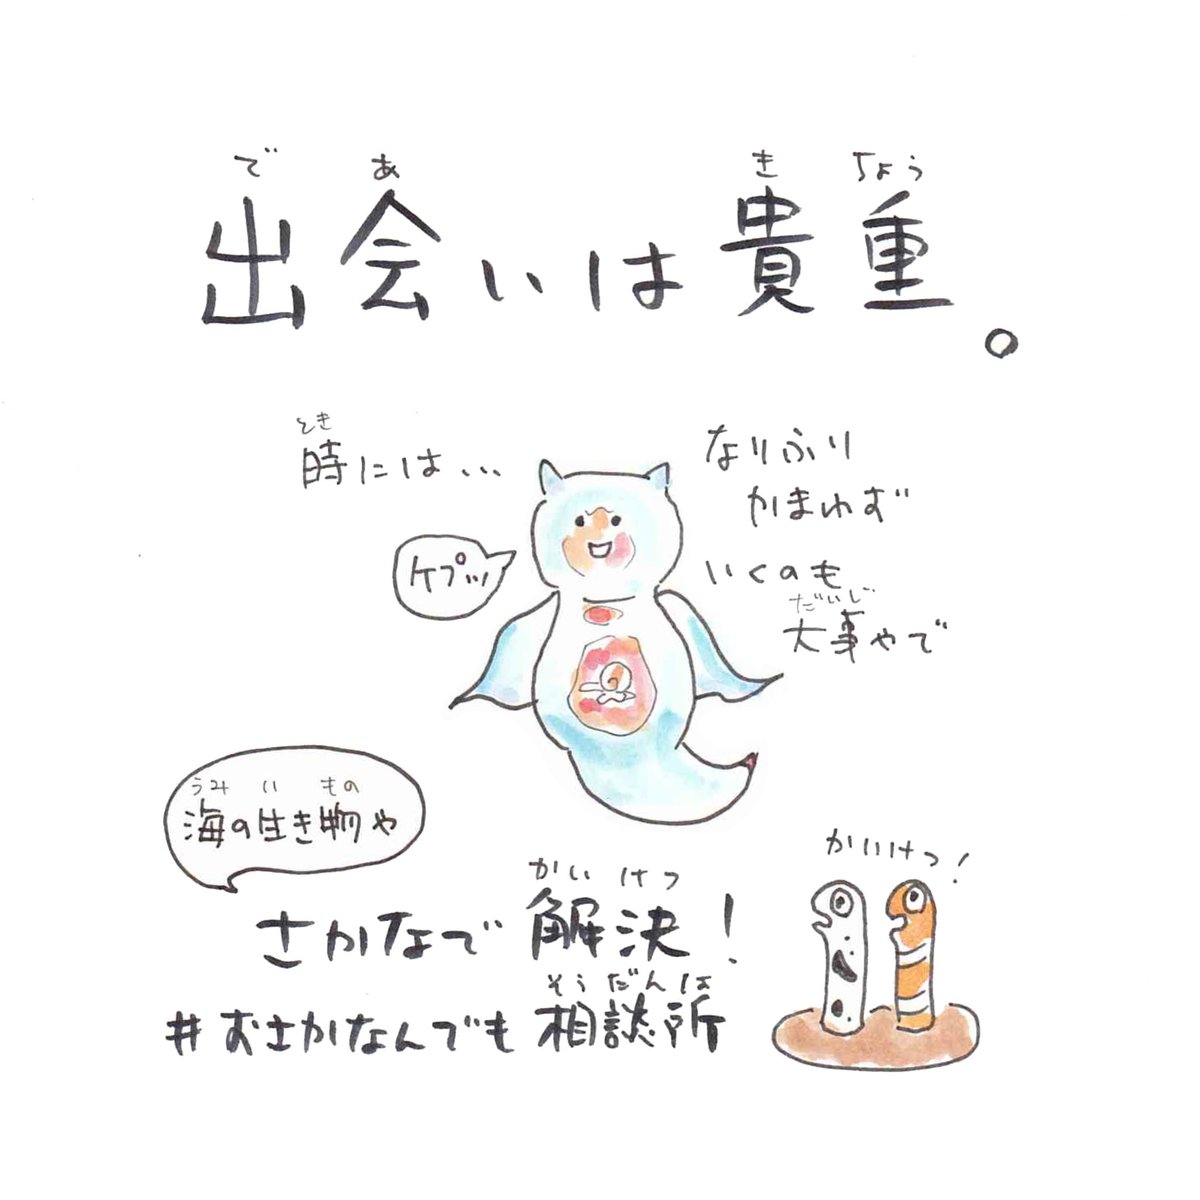 で あ き ちょう
出会いは貴重。
とき
時には...
なりふり
かまわず
いくのも
だいじ
大事やで
ケプッ
うみ い もの
海の生き物や
かい けつ
さかなで解決!
そうだんしょ
#おさかなんでも相談所
かいけつ!